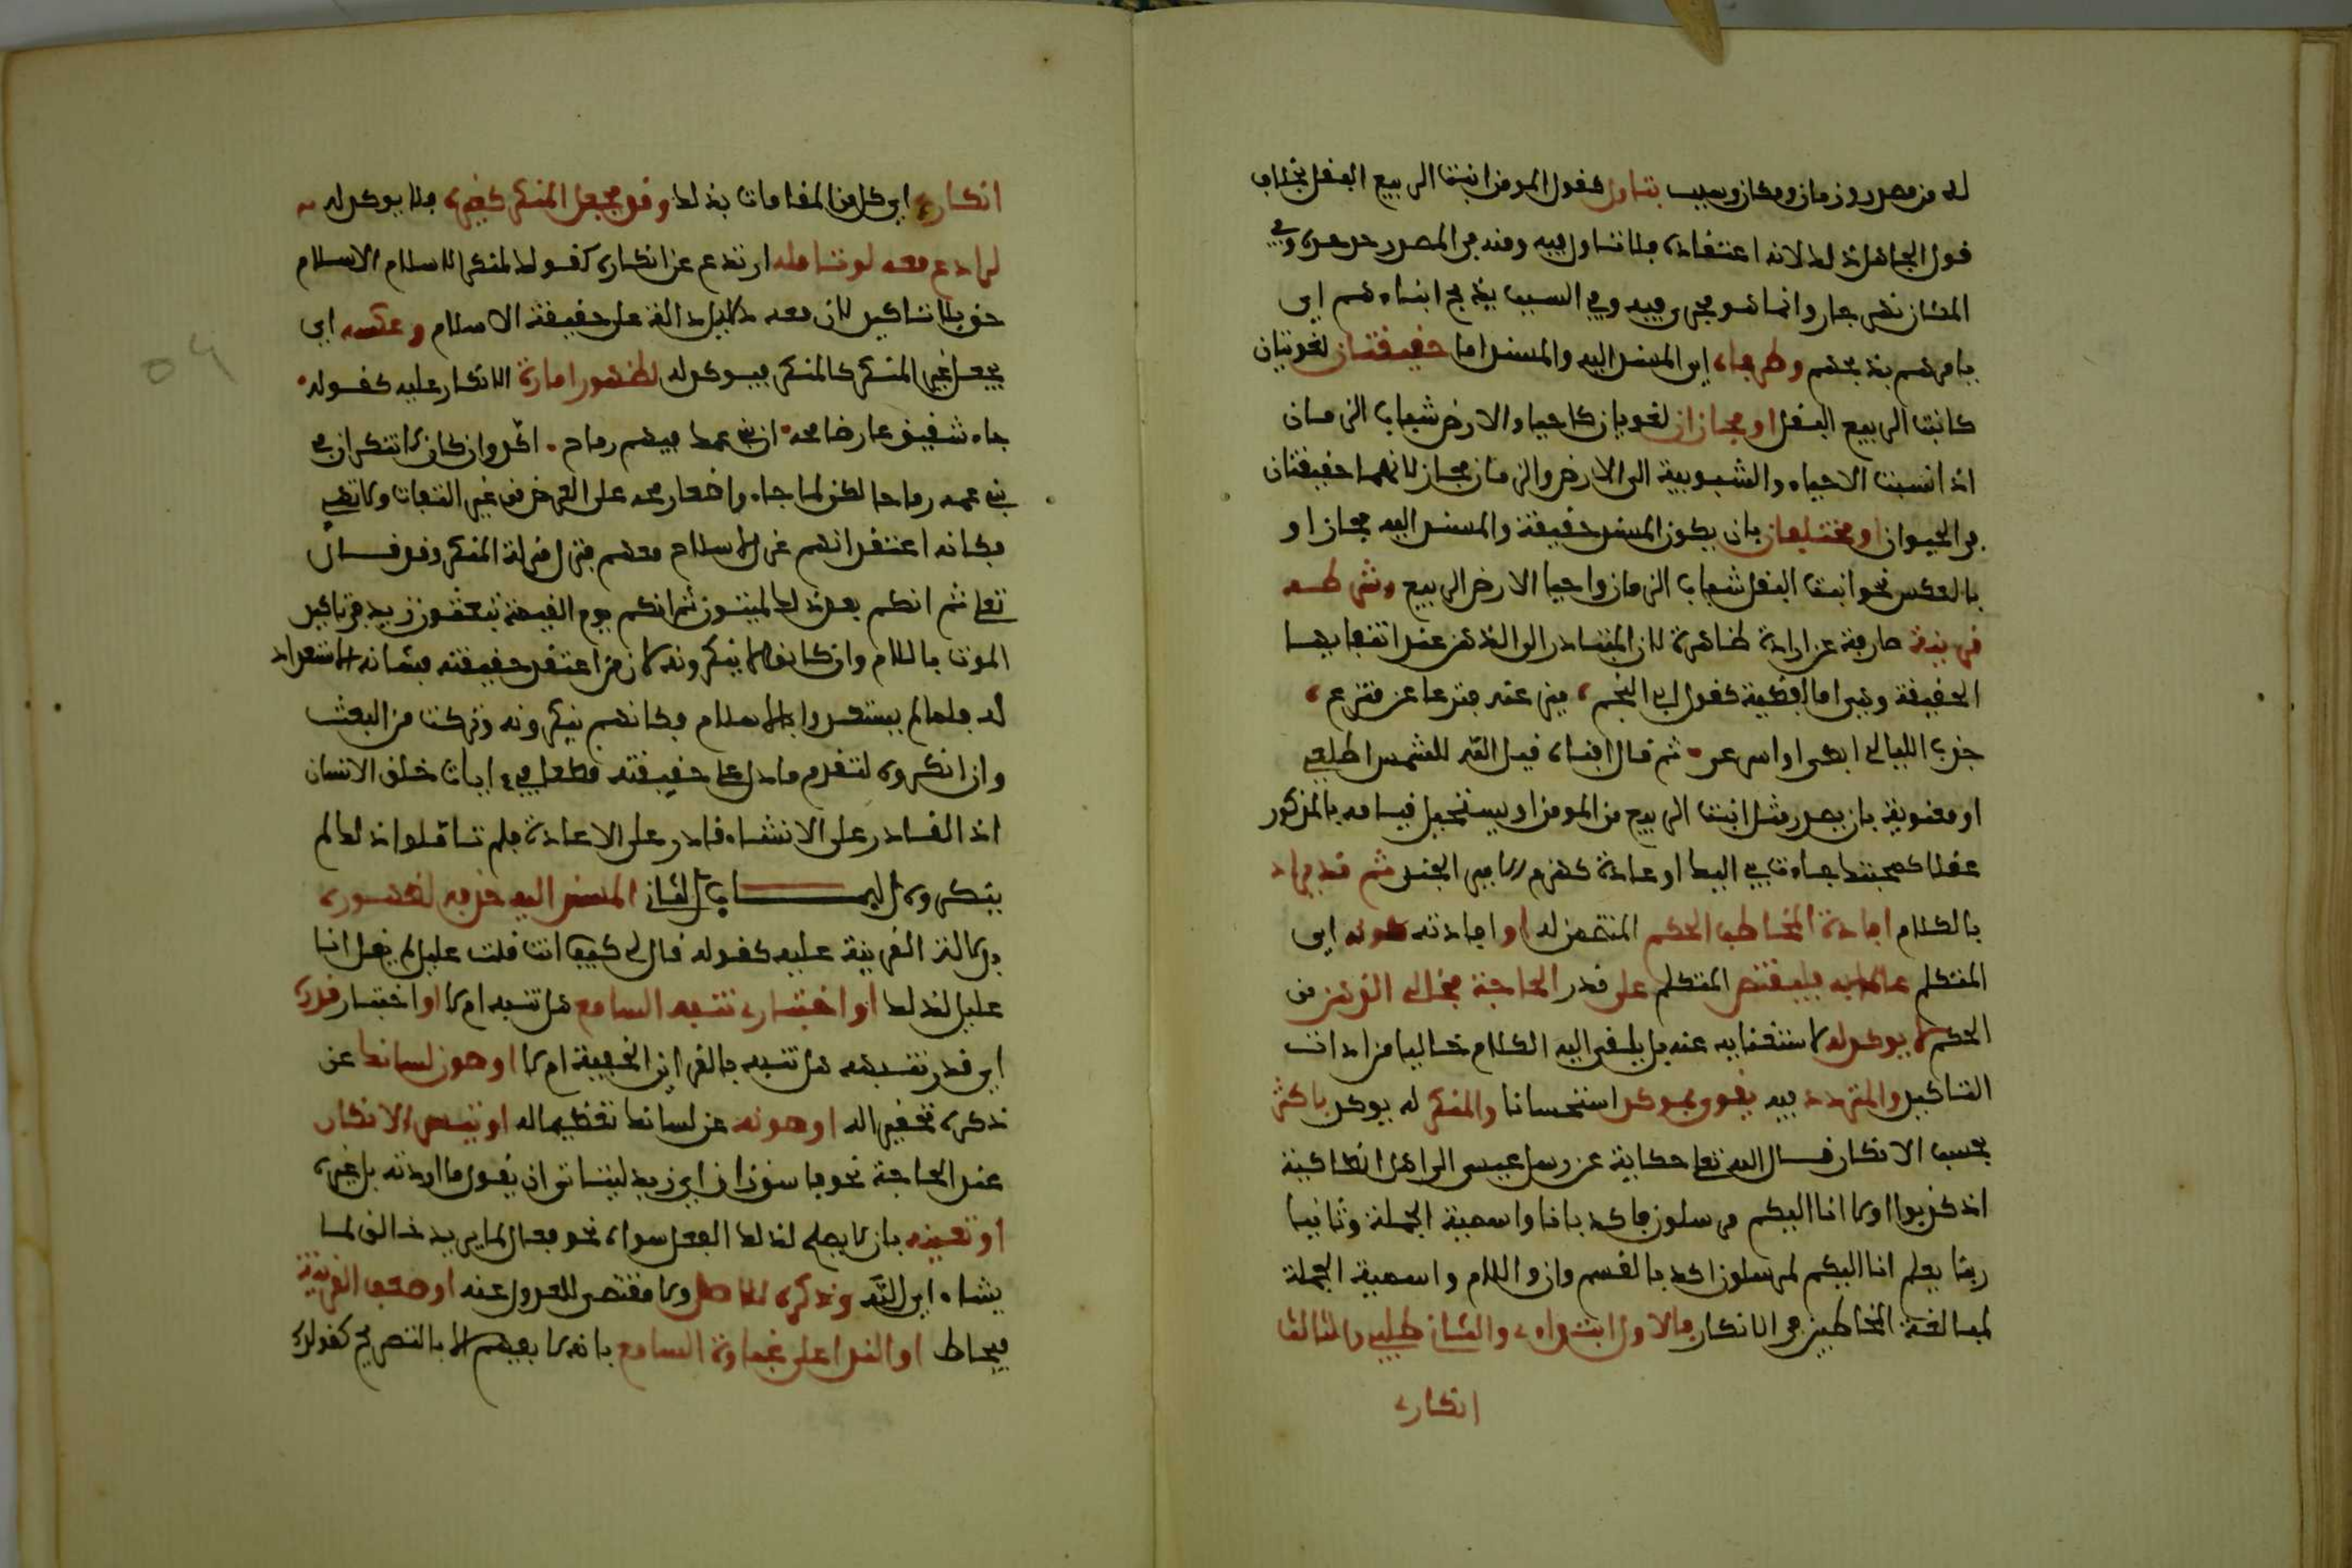 له من مصدر وزمان ومكان وسبب بتاول كقول المومن انبت الربيع البقل بخلاف
قول الجاهل ذلك لانه اعتقاده فلا تاول فيه ومنه في المصدر جد جده وفي
المكان نهر جار وانما هو مجرى فيه وفي السبب يذبح ابناءهم اي
يامرهم بذبحهم وطرفاه اي المسند اليه والمسند اما حقيقتان لغويتان
كانبت الربيع البقل او مجازان لغويان كاحيا الارض شباب الزمان
اذ انسبت الاحياء والشبوبية الى الارض والزمان مجاز لانهما حقيقتان
في الحيوان او مختلفان بان يكون المسند حقيقة والمسند اليه مجاز او
بالعكس نحو انبت البقل شباب الزمان واحيا الارض الربيع وشرطه
قرينة صارفة عن ارادة ظاهره لان المتبادر الى الذهن عند انتفايها
الحقيقة وهي اما لفظية كقول ابي النجم، ميز عنه قنزعا عن قنزع،
جذب الليالي ابطئ او اسرعي ثم قال افناه قيل الله للشمس اطلعي
او معنوية بان يصدر مثل انبت الربيع من المومن او يستحيل قيامه بالمذكور
عقلا كمحبتك جاءت بي اليك او عادة كهزم الامير الجند ثم قد يراد
بالكلام افادة المخاطب الحكم المتضمن له او افادته كونه اي
المتكلم عالما به فليقتصر المتكلم على قدر الحاجة فخالي الذهن من
الحكم لا يوكد له لاستغنايه عنه بل يلقى اليه الكلام خاليا من ادات
التاكيد والمتردد فيه يقوى بموكد استحسانا والمنكر له يوكد باكثر
بحسب الانكار قال الله تعلى حكاية عن رسل عيسى الى اهل انطاكية
اذ كذبوا اولا انا اليكم مرسلون فاكد بان واسمية الجملة وثانيا
ربنا يعلم انا اليكم لمرسلون اكد بالقسم وان واللام واسمية الجملة
لمبالغة المخاطبين في الانكار فالاول ابتداءي والثاني طلبي والثالث
انكاري
انكاري اي كل من المقامات بذلك وقد يجعل المنكر كغيره فلا يوكد له
لرادع معه لو تامله ارتدع عن انكاره كقولك لمنكر الاسلام الاسلام
حق بلا تاكيد لان معه دلايل دالة على حقيقة الاسلام وعكسه اي
يجعل غير المنكر كالمنكر فيوكد له لظهور امارة الانكار عليه كقوله
جاء شقيق عارضا رمحه ان بني عمك فيهم رماح. اكد وان كان لا ينكر ان في
بني عمه رماحا لكن لما جاء واضعا رمحه على العرض من غير التفات ولا تهيي
فكانه اعتقد انهم عزل لا سلاح معهم فنزل منزلة المنكر وقد قال
تعلى ثم انكم بعد ذلك لميتون ثم انكم يوم القيمة تبعثون زيد في تاكيد
الموت باللام وان كانوا لا ينكرونه لان من اعتقد حقيقته فشانه الاستعداد
له فلما لم يستعدوا بالاسلام فكانهم ينكرونه وتركت من البعث
وان انكروه لتقدم ما دل على حقيقته قطعا في ايات خلق الانسان
اذ القادر على الانشاء قادر على الاعادة فلم تاملوا ذلك لم
ينكروه الباب الثاني المسند اليه حذفه لظهوره
بدلالة القرينة عليه كقوله قال لي كيف انت قلت عليل لم يقل انا
عليل لذلك او اختبار تنبه السامع هل تنبه ام لا او اختبار قدره
اي قدر تنبهه هل تنبه بالقراين الخفية ام لا او صون لسانك عن
ذكره تحقيرا له او صونه عن لسانك تعظيما له او تيسر الانكار
عند الحاجة نحو فاسق زان اي زيد ليتاتى ان يقول ما اردته بل غيره
او تعينه بان لا يصلح لذلك الفعل سواه نحو فعال لما يريد خالق لما
يشاء اي الله وذكره للاصل ولا مقتضى للعدول عنه او ضعف القرينة
فيحتاط او الندا على غباوة السامع بانه لا يفهم الا بالتصريح كقولك